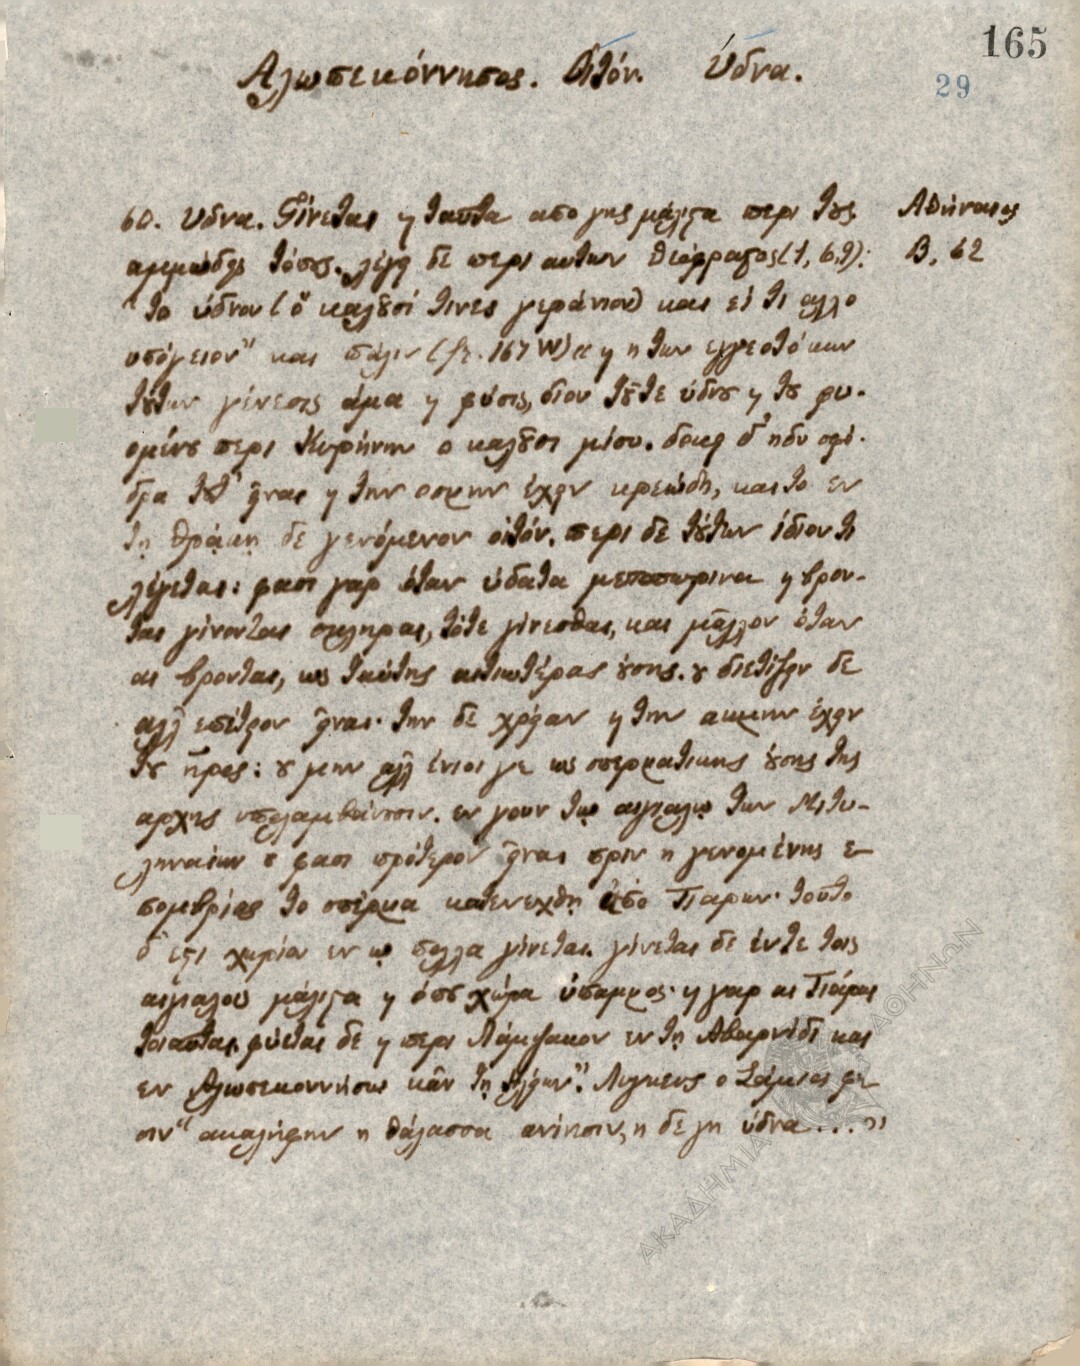 165
29
Αλωπεκόννησος. Οιτόν. Ύδνα.
60. Υδνα. Γίνεται κ ταυτα απο γης μάλιστα περι τους
Αθήναιος
αμμώδεις τόπους. λέγει δε περι αυτων Θεόφραστος (1, 6, 9):
Β, 62
"το ύδνον (ὅ καλουσί τινες γεράνιον) και εί τι αλλο
υπόγειον" και πάλιν (fr. 167 W) "κ η των εγγεοτόκων
τούτων γένεσις άμα κ φύσις, οίον τουτε ύδνου κ του φυ-
ομένου περι Κυρήνην ο καλουσι μίσυ. δοκει δ' ηδυ σφό-
δρα τουτ' είναι κ την οσμην έχειν κρεώδη, και το εν
τη Θράκη δε γενόμενον οιτόν. περι δε τούτων ίδιον τι
λέγεται: φασι γαρ όταν ύδατα μετοπωρινα κ βρον-
ται γίνονται σκληραι, τότε γίνεσθαι, και μαλλον όταν
αι βρονται, ως ταύτης αιτιωτέρας ούσης. ου διετίζειν δε
αλλ επέτειον είναι· την δε χρείαν κ την ακμην έχειν
του ηρος: ου μην αλλ ένιοι γε ως σπερματικης ούσης της
αρχης υπολαμβάνουσιν. εν γουν τω αιγιαλω των Μιτυ-
ληναίων ου φασι πρότερον είναι πριν η γενομένης ε-
πομβρίας το σπέρμα κατενεχθη από Τιαρων· τουτο
δ' εστι χωρίον εν ω πολλα γίνεται. γίνεται δε έντε τοις
αιγιαλοις μάλιστα κ όπου χώρα ύπαμμος· κ γαρ αι Τιάραι
τοιαυται. φύεται δε κ περι Λάμψακον εν τη Αβαρνίδι και
εν Αλωπεκοννήσω καν τη Ηλείων". Λυγκευς ο Σάμιος φη-
σιν "ακαλήφην η θάλασσα ανίησιν, η δε γη ύδνα...."
ΑΚΑΔΗΜΙΑ ΑΘΗΝΩΝ